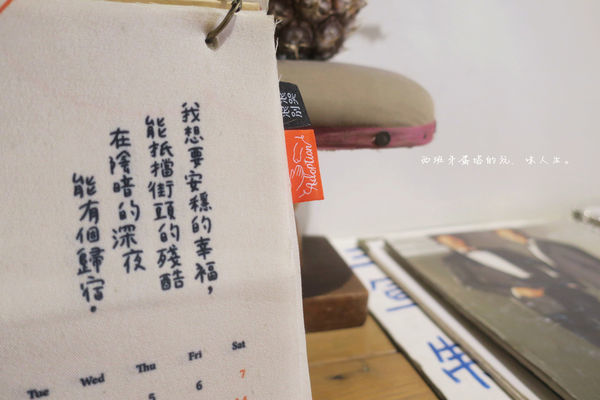 我想要安穩的幸福，
能抵擋街頭的殘酷
在陰暗的深夜
能有個歸宿。
Tue Wed Thu Fri Sat
5 6 7
14
浪浪
別哭
Adoption
西班牙蕃婆的玩．味人生。